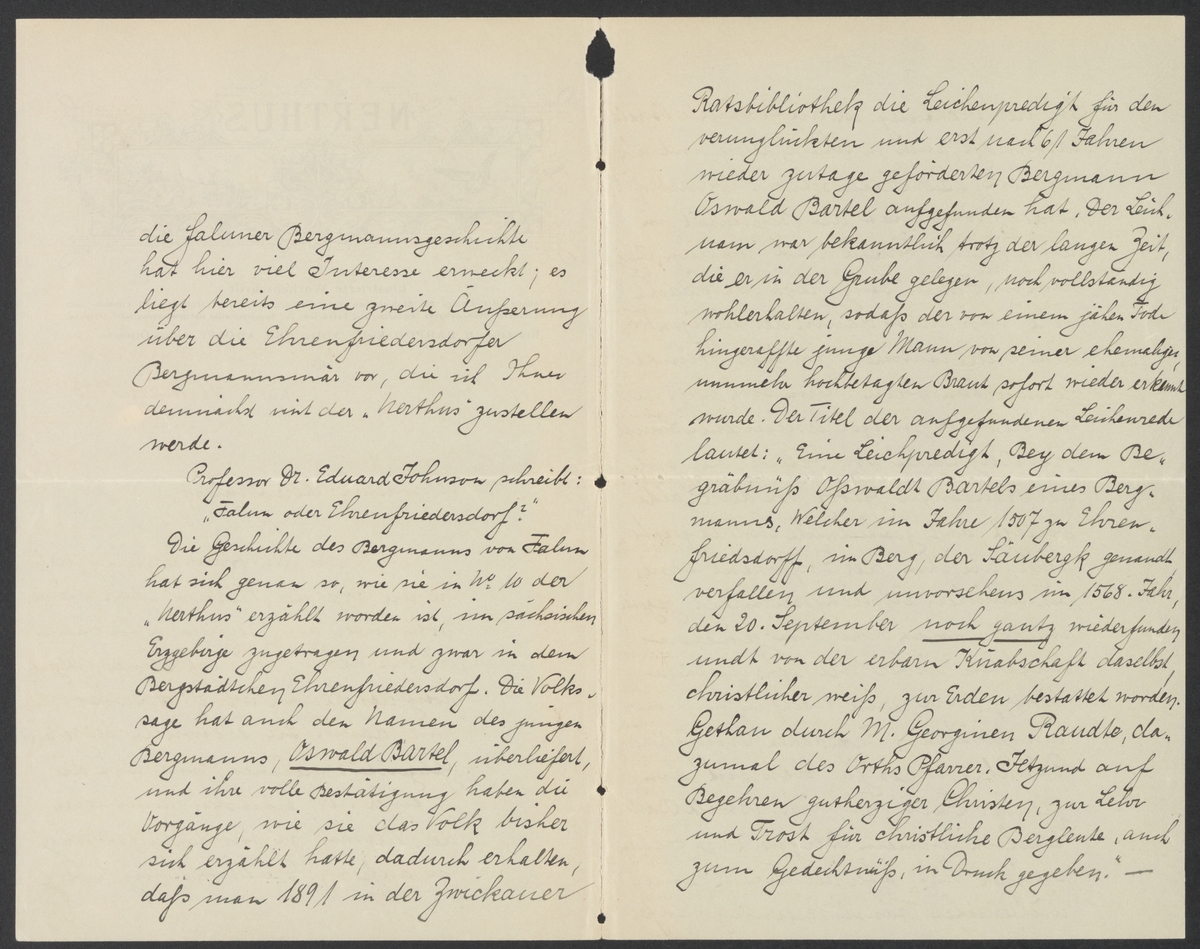 die faluner Bergmannsgeschichte
hat hier viel Interesse erweckt; es
liegt bereits eine zweite Äußerung
über die Ehrenfriedersdorfer
Bergmannsmär vor, die ich Ihnen
demnächst mit der „Nerthus“ zustellen
werde.
Professor Dr. Eduard Johnson schreibt:
„Falun oder Ehrenfriedersdorf?“
Die Geschichte des Bergmanns von Falun
hat sich genau so, wie sie in No. 10 der
„Nerthus“ erzählt worden ist, im sächsischen
Erzgebirge zugetragen und zwar in dem
Bergstädtchen Ehrenfriedersdorf. Die Volks-
sage hat auch den Namen des jungen
Bergmanns, Oswald Bartel, überliefert,
und ihre volle Bestätigung haben die
Vorgänge, wie sie das Volk bisher
sich erzählt hatte, dadurch erhalten,
daß man 1891 in der Zwickauer
Ratsbibliothek die Leichenpredigt für den
verunglückten und erst nach 61 Jahren
wieder zutage geförderten Bergmann
Oswald Bartel aufgefunden hat. Der Leich-
nam war bekanntlich trotz der langen Zeit,
die er in der Grube gelegen, noch vollständig
wohlerhalten, sodaß der von einem jähen Tode
hingeraffte junge Mann von seiner ehemaligen,
nunmehr hochbetagten Braut sofort wieder erkannt
wurde. Der Titel der aufgefundenen Leichenrede
lautet: „Eine Leichpredigt, Bey dem Be-
gräbnüß Oßwaldt Bartels eines Berg-
manns, Welcher im Jahre 1507 zu Ehren-
friedsdorff, im Berg, der Säubergk genandt,
verfallen und unvorsehens im 1568. Jahr,
den 20. September noch gantz wiederfunden
undt von der erbarn Knabschaft daselbst,
christlicher weiß, zur Erden bestattet worden.
Gethan durch M. Georginen Raudte, da-
zumal des Orths Pfarrer. Jetzund auf
Begehren gutherziger Christen, zur Lehr
und Trost für christliche Bergleute, auch
zum Gedechtnüß, in Druck gegeben.“ —